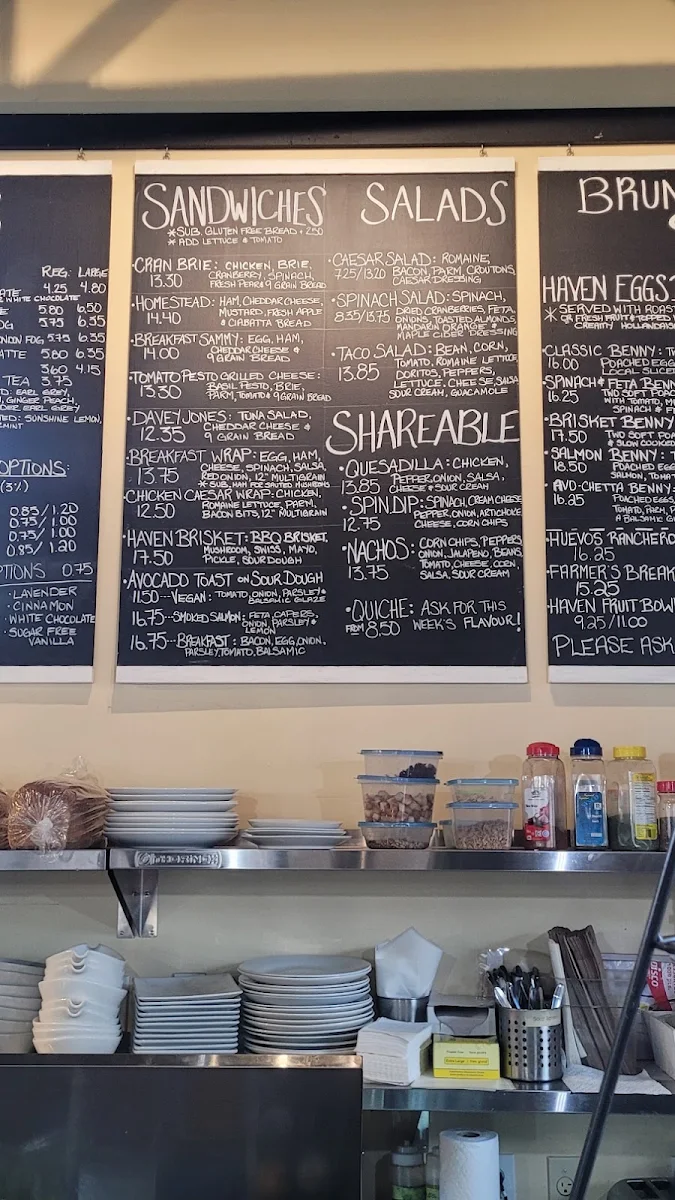 REG. LARGE
4.25 4.80
WHITE CHOCOLATE
5.80 6.50
5.75 6.55
5.75 6.55
5.80 6.35
3.60 4.15
TEA 3.75
EARL GREY,
GINGER PEACH,
EARL GREY
SUNSHINE LEMON,
MINT
OPTIONS:
(3%)
0.85/1.20
0.75/1.00
0.75/1.00
0.85/1.20
0.75
LAVENDER
CINNAMON
WHITE CHOCOLATE
SUGAR FREE
VANILLA
SANDWICHES
*SUB. GLUTEN FREE BREAD + 2.50
*ADD LETTUCE & TOMATO
•CRAN BRIE: CHICKEN, BRIE,
13.30 CRANBERRY, SPINACH,
FRESH PEAR & 9 GRAIN BREAD
•HOMESTEAD: HAM, CHEDDAR CHEESE,
14.40 MUSTARD, FRESH APPLE
& CIABATTA BREAD
•BREAKFAST SAMMY: EGG, HAM,
14.00 CHEDDAR CHEESE &
9 GRAIN BREAD
•TOMATO PESTO GRILLED CHEESE:
13.30 BASIL PESTO, BRIE,
PARM, TOMATO & 9 GRAIN BREAD
•DAVEY JONES: TUNA SALAD,
12.35 CHEDDAR CHEESE &
9 GRAIN BREAD
•BREAKFAST WRAP: EGG, HAM,
13.75 CHEESE, SPINACH, SALSA,
RED ONION, 12" MULTIGRAIN
*SUB. HAM FOR SAUTED MUSHROOMS
•CHICKEN CAESAR WRAP: CHICKEN,
12.50 ROMAINE LETTUCE, PARM,
BACON BITS, 12" MULTIGRAIN
•HAVEN BRISKET: BBQ BRISKET,
17.50 MUSHROOM, SWISS, MAYO,
PICKLE, SOURDOUGH
•AVOCADO TOAST ON SOURDOUGH
11.50--VEGAN: TOMATO, ONION, PARSLEY &
BALSAMIC GLAZE
16.75--SMOKED SALMON: FETA, CAPERS,
ONION, PARSLEY &
LEMON
16.75--BREAKFAST: BACON, EGG, ONION,
PARSLEY, TOMATO, BALSAMIC
SALADS
•CAESAR SALAD: ROMAINE,
7.25/13.20 BACON, PARM, CROUTONS,
CAESAR DRESSING
•SPINACH SALAD: SPINACH,
8.35/13.75 DRIED CRANBERRIES, FETA,
ONIONS, TOASTED ALMONDS,
MANDARIN ORANGE &
MAPLE CIDER DRESSING
•TACO SALAD: BEAN, CORN,
13.85 TOMATO, ROMAINE LETTUCE
DORITOS, PEPPERS,
LETTUCE, CHEESE, SALSA,
SOUR CREAM, GUACAMOLE
SHAREABLE
•QUESADILLA: CHICKEN,
13.85 PEPPER, ONION, SALSA,
CHEESE & SOUR CREAM
•SPIN DIP: SPINACH, CREAM CHEESE
12.75 PEPPER, ONION, ARTICHOKE
CHEESE, CORN CHIPS
•NACHOS: CORN CHIPS, PEPPERS
13.75 ONION, JALAPENO, BEANS,
TOMATO, CHEESE, CORN
SALSA, SOUR CREAM
•QUICHE: ASK FOR THIS
FROM 8.50 WEEK'S FLAVOUR!
BRUN
HAVEN EGGS
*SERVED WITH ROAST
OR FRESH FRUIT & TOPPED W
CREAMY HOLLANDAIS
•CLASSIC BENNY: T
16.00 POACHED EGG
LOCAL SLICED
•SPINACH & FETA BENN
16.25 TWO SOFT POA
WITH TOMATO, M
SPINACH & F
•BRISKET BENNY
17.50 TWO SOFT POA
& SLOW COOKED
•SALMON BENNY: T
18.50 POACHED EGG
SALMON, TOMA
•AVO-CHETTA BENNY:
16.25 POACHED EGGS,
TOMATO, PARM, P
& BALSAMIC G
•HUEVOS RANCHERO
16.25
•FARMER'S BREAK
15.25
•HAVEN FRUIT BOW
9.25/11.00
PLEASE ASK